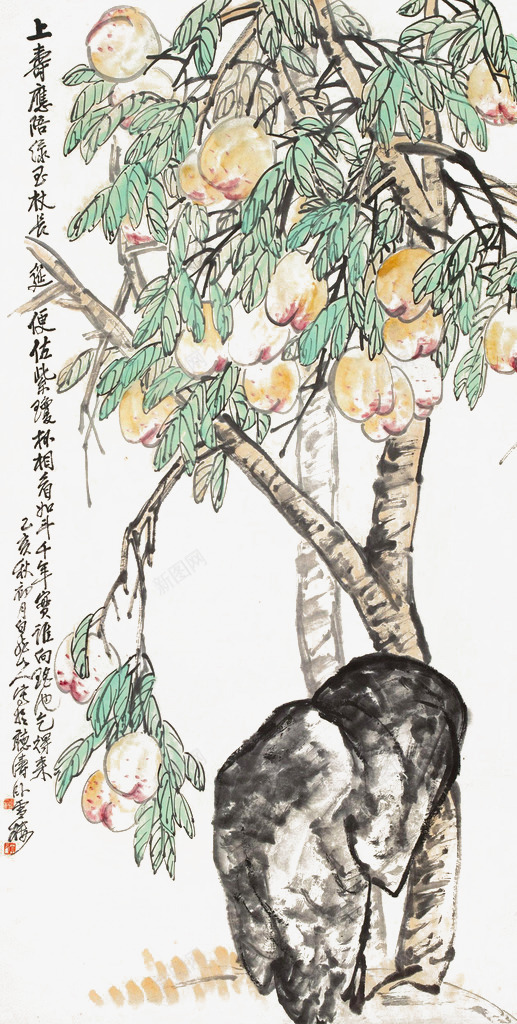 上壽應陪綠玉杖長筵便佐紫瓊杯相看如斗千年實誰向瑤池乞得來
乙亥秋初月白龍山人寫於聽濤臥
新图网